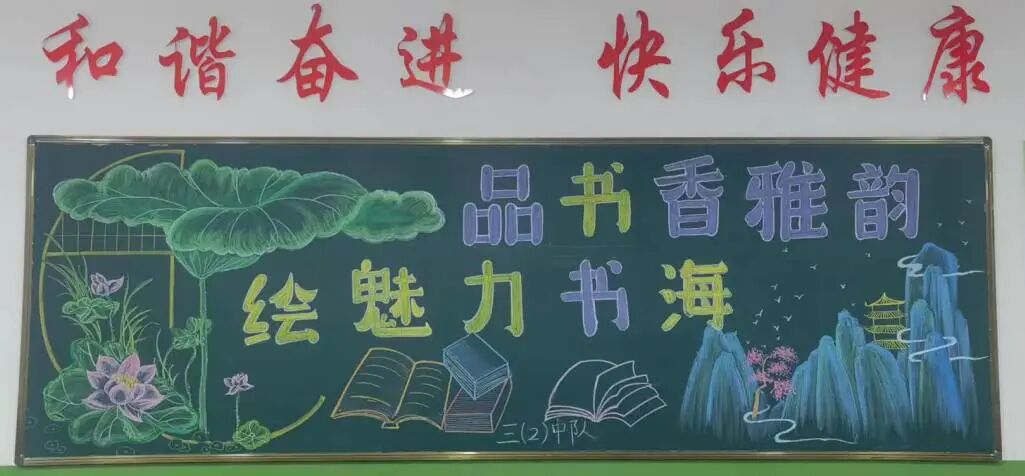 和谐奋进 快乐健康
品书香雅韵
绘魅力书海
三(2)中队